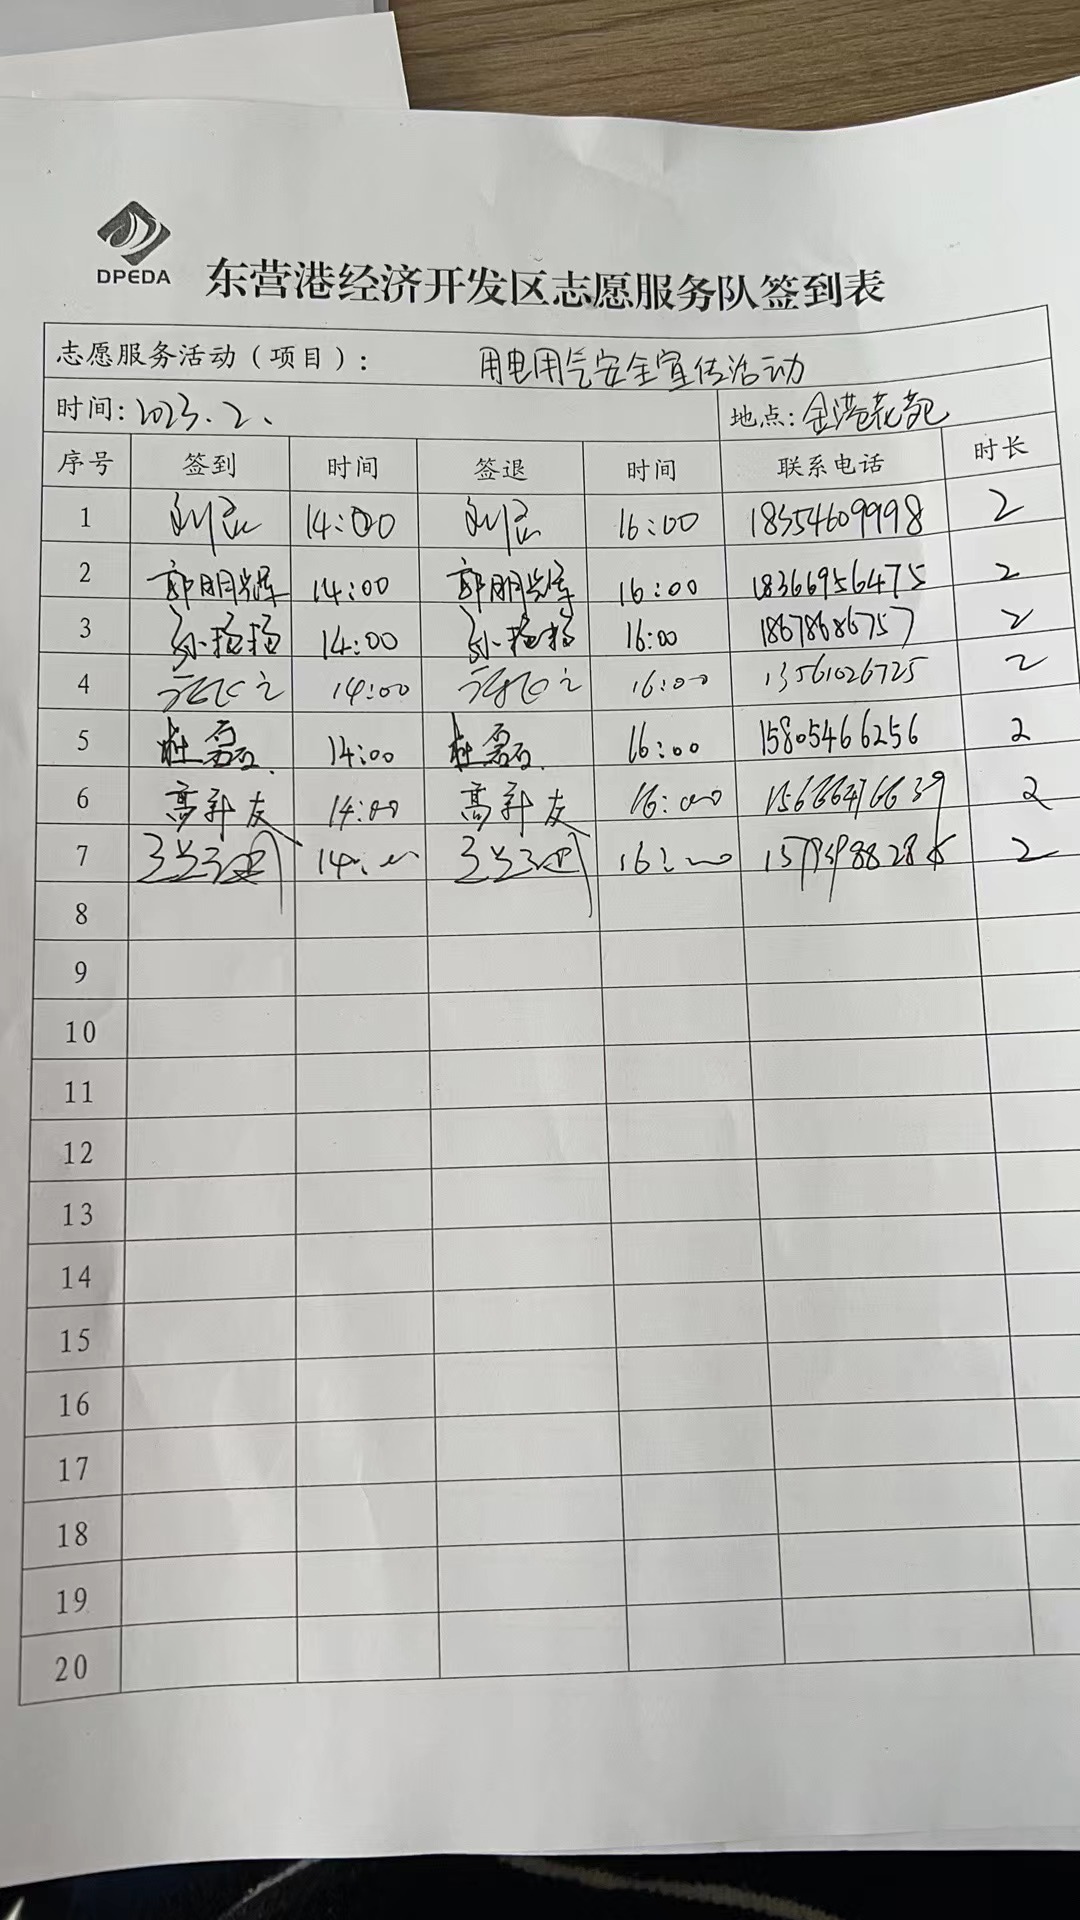 DPEDA
东营港经济开发区志愿服务队签到表
志愿服务活动(项目): 用电用气安全宣传活动
时间: 2023.2、 地点: 金港花苑
序号 签到 时间 签退 时间 联系电话 时长
1 14:00 16:00 18354609998 2
2 郭明辉 14:00 郭明辉 16:00 18366956475 2
3 孙杨杨 14:00 孙杨杨 16:00 18678686757 2
4 14:00 16:00 13561026725 2
5 杜磊 14:00 杜磊 16:00 15805466256 2
6 高新友 14:00 高新友 16:00 2
7 14:00 16:00 2
8
9
10
11
12
13
14
15
16
17
18
19
20